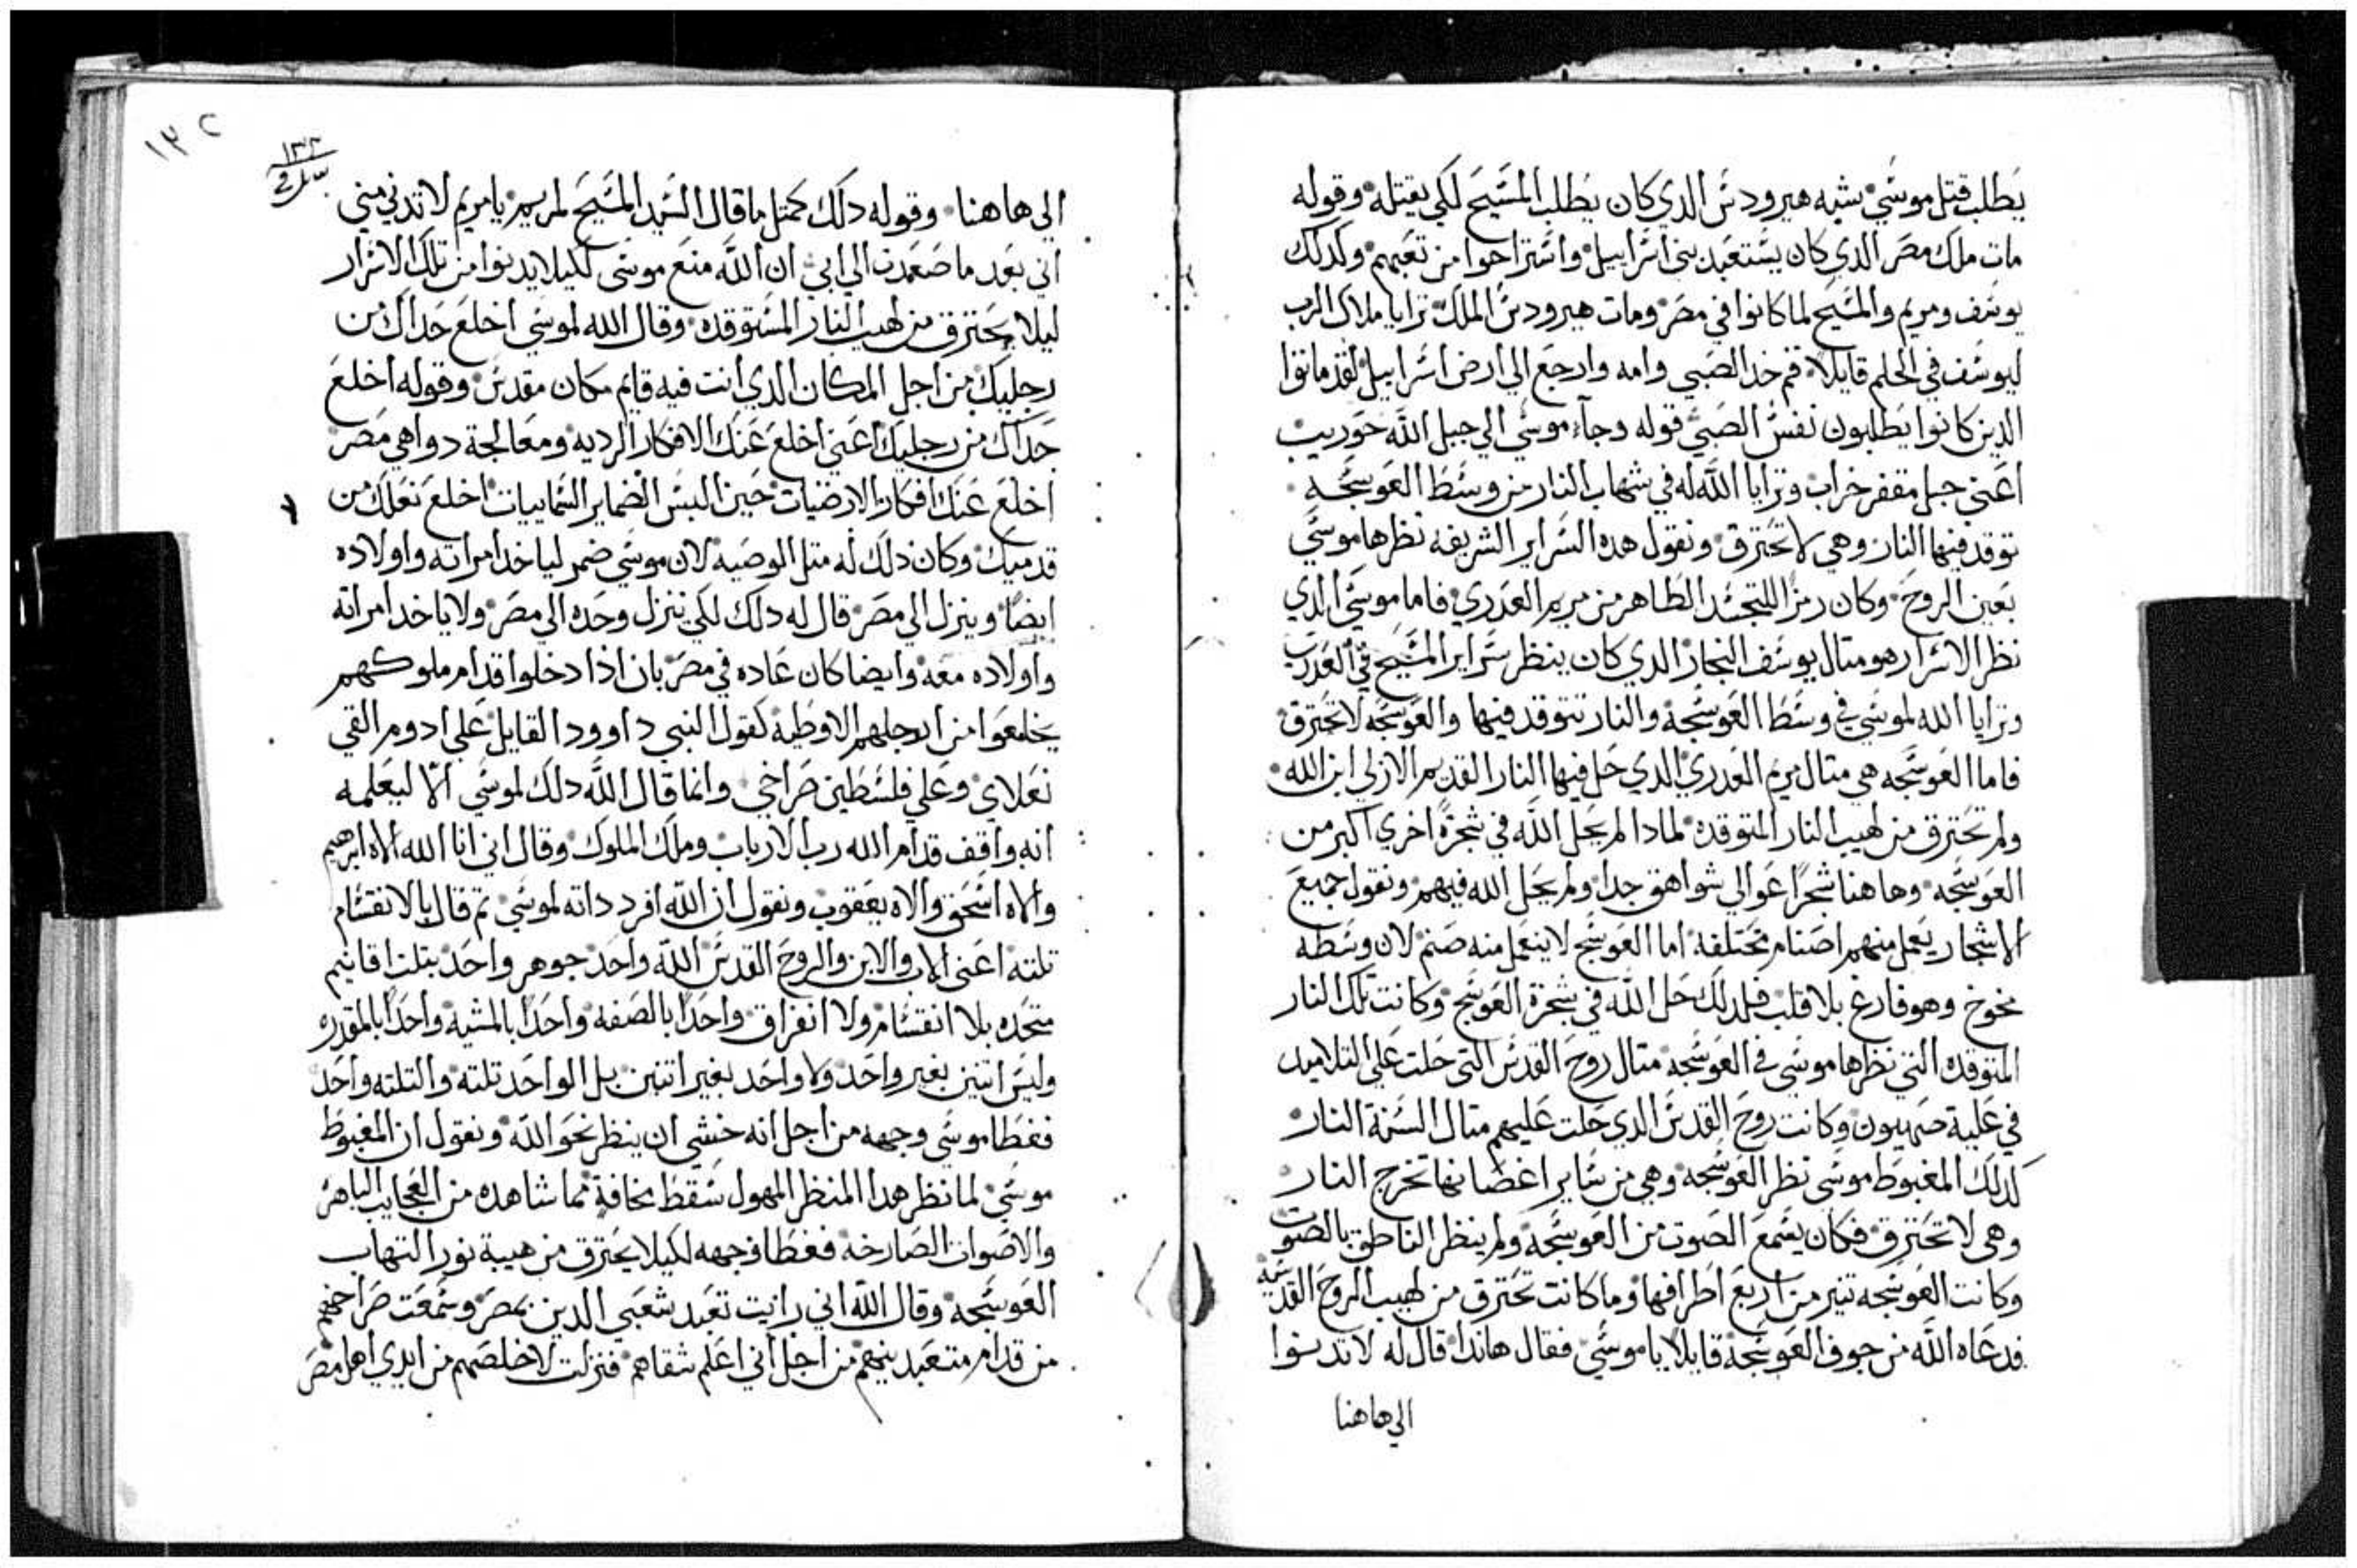 يطلب قتل موسي يشبه هيرودس الدي كان يطلب المسيح لكي يقتله وقوله
مات ملك مصر الدي كان يستعبد بني اسراييل واستراحوا من تعبهم وكدلك
يوسف ومريم والمسيح لما كانوا في مصر ومات هيرودس الملك ترايا ملاك الرب
ليوسف في الحلم قايلا قم خد الصبي وامه وارجع الي ارض اسراييل لقد ماتوا
الدين كانوا يطلبون نفس الصبي قوله وجاء موسي الي جبل الله حوريب
اعني جبل مقفر خراب وترايا الله له في شهاب النار من وسط العوسجه
توقد فيها النار وهي لا تحترق ونقول هده السراير الشريفه نظرها موسي
بعين الروح وكان رمزا للتجسد الطاهر من مريم العدري فاما موسي الدي
نظر الاسرار هو متال يوسف النجار الدي كان ينظر سراير المسيح في العدري
وترايا الله لموسي في وسط العوسجة والنار تتوقد فيها والعوسجه لا تحترق
فاما العوسجه هي متال مريم العدري الدي حل فيها النار القديم الازلي ابن الله
ولم تحترق من لهيب النار المتوقده لمادا لم يحل الله في شجرة اخري اكبر من
العوسجه وهاهنا شجرا عوالي شواهق جدا ولم يحل الله فيهم ونقول جميع
الاشجار يعمل منهم اصنام مختلفه اما العوسج لا ينعمل منه صنم لان وسطه
مخوخ وهو فارغ بلا قلب فلدلك حل الله في شجرة العوسج وكانت تلك النار
المتوقده التي نظرها موسي في العوسجه متال روح القدس التي حلت علي التلاميد
في علية صهيون وكانت روح القدس الدي حلت عليهم متال السنة النار
كدلك المغبوط موسي نظر العوسجه وهي من ساير اغصانها تخرج النار
وهي لا تحترق فكان يسمع الصوت من العوسجه ولم ينظر الناطق بالصوت
وكانت العوسجه تنير من اربع اطرافها وما كانت تحترق من لهيب الروح القدسيه
فدعاه الله من جوف العوسجة قايلا يا موسي فقال هاندا قال له لا تدنوا
الي هاهنا
١٣٢
١٣٢
الي هاهنا وقوله دلك كمتل ما قال السيد المسيح لمريم يا مريم لا تدني مني
اني بعد ما صعدت الي ابي ان الله منع موسي لكيلا يدنوا من تلك الاسرار
ليلا يحترق من لهيب النار المستوقده وقال الله لموسي اخلع حداك من
رجليك من اجل المكان الدي انت فيه قايم مكان مقدس وقوله اخلع
حداك من رجليك اعني اخلع عنك الافكار الرديه ومعالجة دواهي مصر
اخلع عنك افكار الارضيات حين البس الضماير السماييات اخلع نعلك من
قدميك وكان دلك له متل الوصيه لان موسي ضمر لياخد امراته واولاده
ايضا وينزل الي مصر قال له دلك لكي ينزل وحده الي مصر ولا ياخد امراته
واولاده معه وايضا كان عاده في مصر بان اذا دخلوا قدام ملوكهم
يخلعوا من ارجلهم الاوطيه كقول النبي داوود القايل علي ادوم القي
نعلاي وعلي فلسطين صراخي وانما قال الله دلك لموسي الا ليعلمه
انه واقف قدام الله رب الارباب وملك الملوك وقال اني انا الله الاه ابرهيم
والاه اسحق والاه يعقوب ونقول ان الله افرد داته لموسي تم قال بالانقسام
تلته اعني الاب والابن والروح القدس الله واحد جوهر واحد بتلت اقانيم
متحده بلا انقسام ولا انفراق واحدا بالصفه واحدا بالمشيه واحدا بالمقدره
وليس اتنين بغير واحد ولا واحد بغير اتنين بل الواحد تلته والتلته واحد
فغطا موسي وجهه من اجل انه خشي ان ينظر نحو الله ونقول ان المغبوط
موسي لما نظر هدا المنظر المهول سقط مخافة مما شاهده من العجايب الباهره
والاصوات الصارخه فغطا وجهه لكيلا يحترق من هيبة نور التهاب
العوسجه وقال الله اني رايت تعبد شعبي الدين بمصر وسمعت صراخهم
من قدام متعبدينهم من اجل اني اعلم شقاهم فنزلت لاخلصهم من ايدي اهل مصر